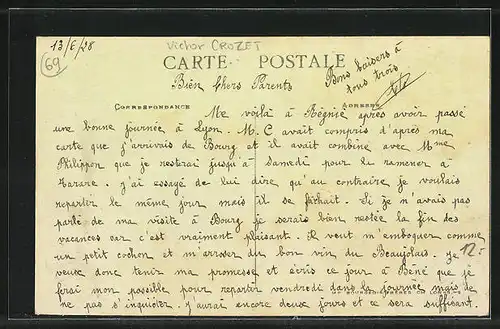 13/6/28
Victor CROZET
69
CARTE POSTALE
Bien chers Parents
Bons baisers à
tous trois
CORRESPONDANCE
ADRESSE
Me voilà à Régnié après avoir passé
une bonne journée à Lyon. M. C avait compris d'après ma
carte que j'arrivais de Bourg et il avait combiné avec Mme
Philippon que je resterai jusqu'à samedi pour la ramener à
Tarare. j'ai essayé de lui dire qu'au contraire je voulais
repartir le même jour mais il se fâchait. Si je n'avais pas
parlé de ma visite à Bourg je serais bien restée la fin des
vacances car c'est vraiment plaisant. il veut m'emboquer comme
un petit cochon et m'arroser du bon vin du Beaujolais. je
12.-
veux donc tenir ma promesse et écris ce jour à Béné que je
ferai mon possible pour repartir vendredi dans la journée mais de
ne pas s'inquiéter. j'aurai encore deux jours et ce sera suffisant.